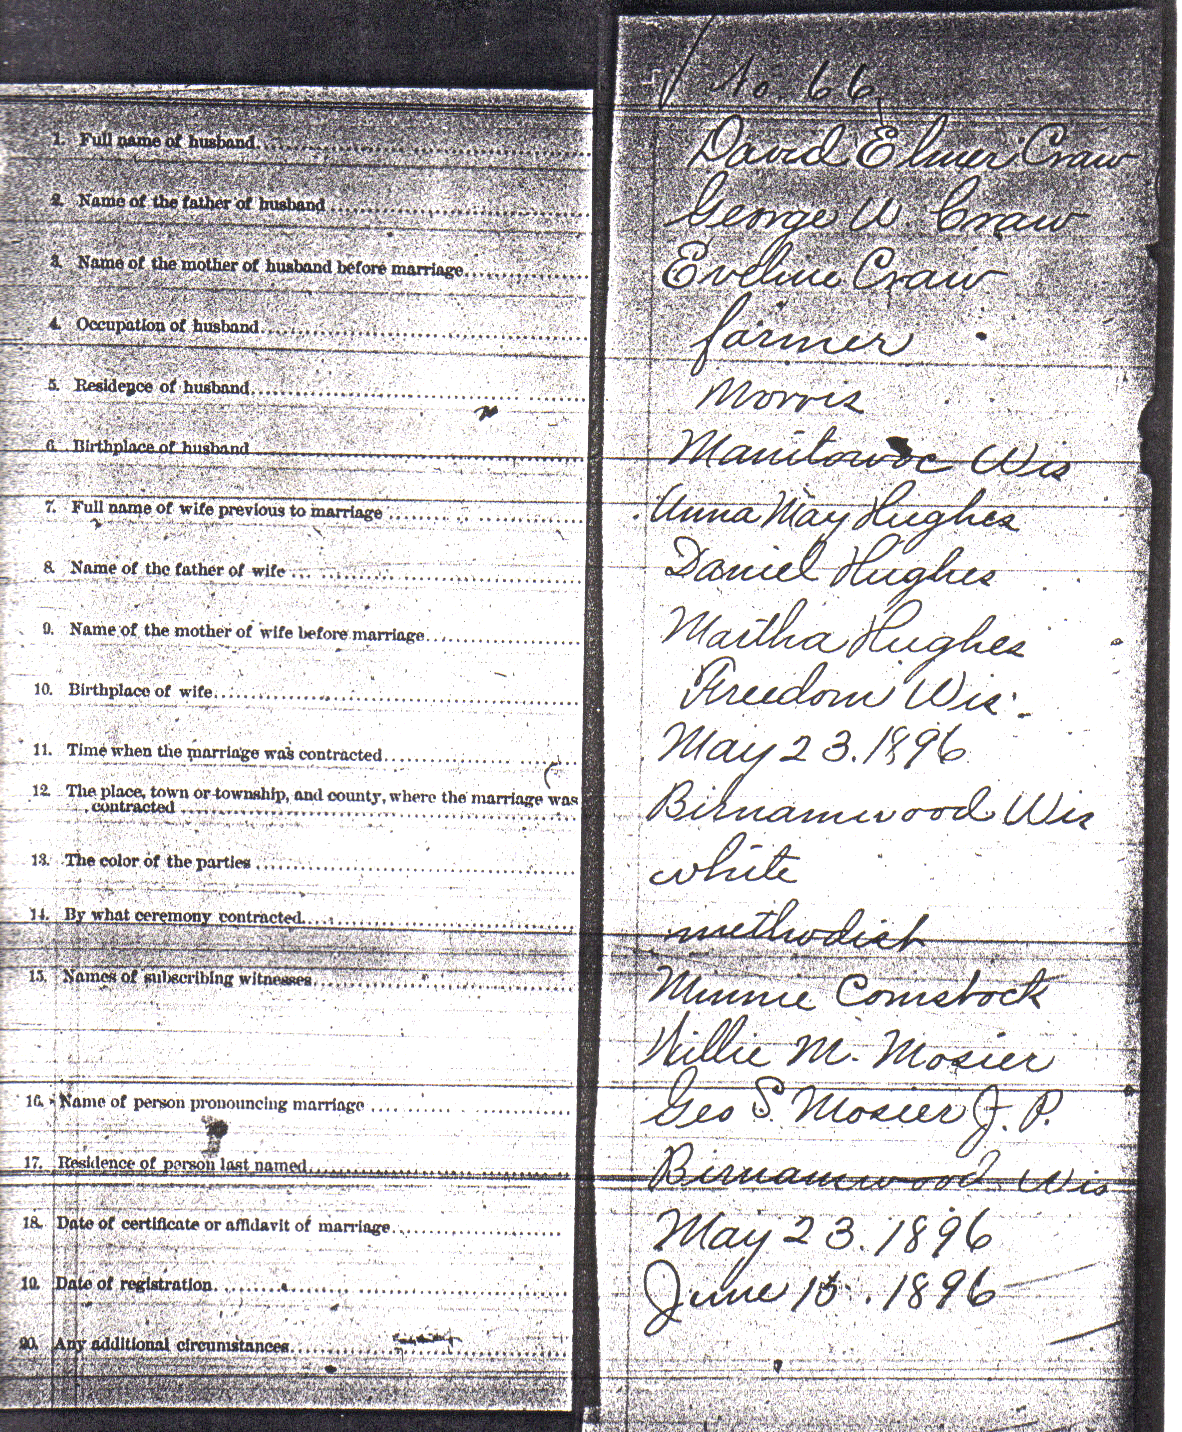 No. 66
1. Full name of husband David Elmer Craw
2. Name of the father of husband George W. Craw
3. Name of the mother of husband before marriage Eveline Craw
4. Occupation of husband farmer
5. Residence of husband Morris
6. Birthplace of husband Manitowoc Wis
7. Full name of wife previous to marriage Anna May Hughes
8. Name of the father of wife Daniel Hughes
9. Name of the mother of wife before marriage Martha Hughes
10. Birthplace of wife Freedom Wis.
11. Time when the marriage was contracted May 23. 1896
12. The place, town or township, and county, where the marriage was
contracted Birnamwood Wis
13. The color of the parties white
14. By what ceremony contracted methodist
15. Names of subscribing witnesses Minnie Comstock
Willie M. Mosier
16. Name of person pronouncing marriage Geo S. Mosier J. P.
17. Residence of person last named Birnamwood Wis
18. Date of certificate or affidavit of marriage May 23. 1896
19. Date of registration June 15. 1896
20. Any additional circumstances